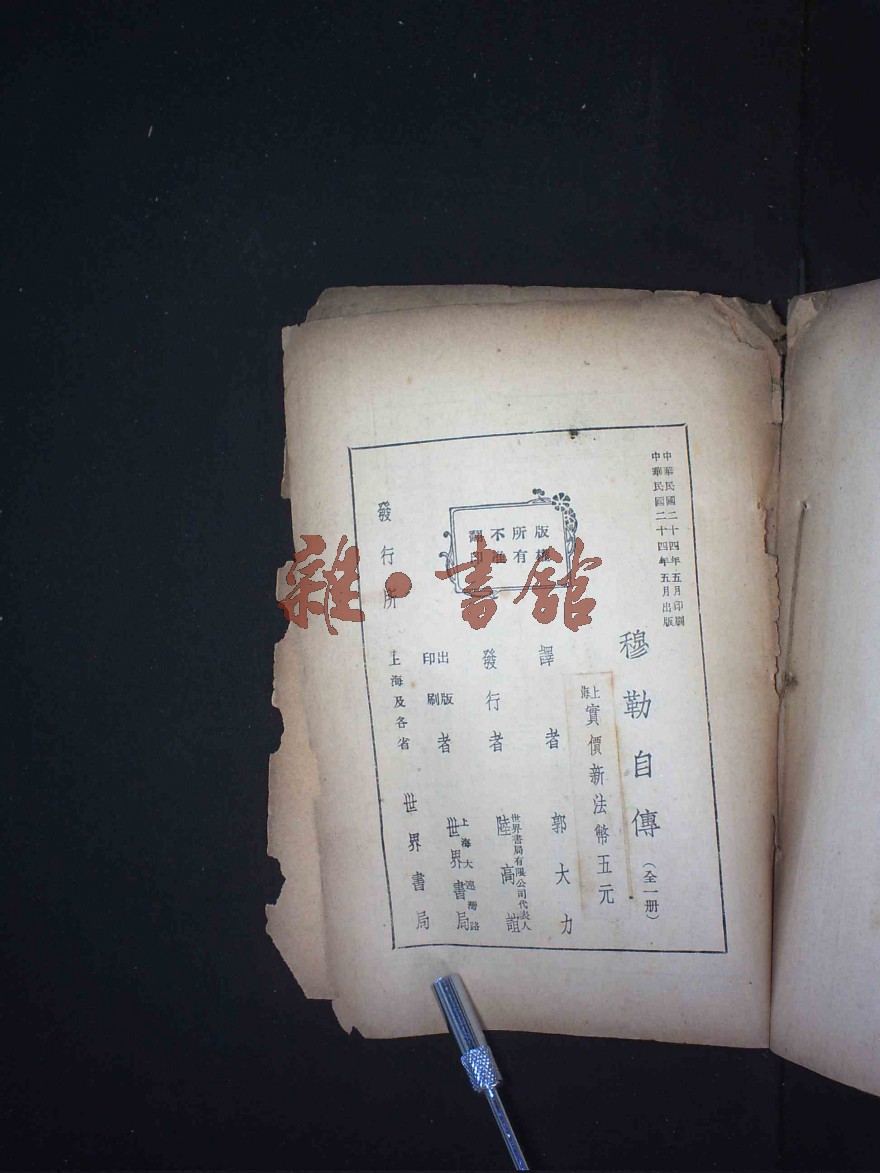 中華民國二十四年五月印刷
中華民國二十四年五月出版
穆勒自傳（全一册）
上海實價新法幣五元
版權所有
不准翻印
譯者 郭大力
發行者 世界書局有限公司代表人 陸高誼
出版印刷者 上海大連灣路 世界書局
發行所 上海及各省 世界書局
雜·書館